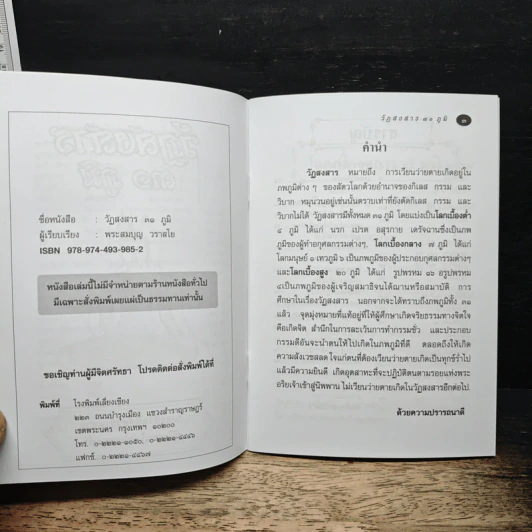 ชื่อหนังสือ : วัฏสงสาร ๓๑ ภูมิ
ผู้เรียบเรียง : พระสมบุญ วราสโย
ISBN 978-974-493-985-2
หนังสือเล่มนี้ไม่มีจำหน่ายตามร้านหนังสือทั่วไป
มีเฉพาะสั่งพิมพ์เผยแผ่เป็นธรรมทานเท่านั้น
ขอเชิญท่านผู้มีจิตศรัทธา โปรดติดต่อสั่งพิมพ์ได้ที่
พิมพ์ที่ โรงพิมพ์เลี่ยงเชียง
๒๒๓ ถนนบำรุงเมือง แขวงสำราญราษฎร์
เขตพระนคร กรุงเทพฯ ๑๐๒๐๐
โทร. ๐-๒๒๒๑-๑๐๕๐, ๐-๒๒๒๑-๔๔๔๖
แฟกซ์. ๐-๒๒๒๑-๔๔๖๗
วัฏสงสาร ๓๑ ภูมิ ๓
คำนำ
วัฏสงสาร หมายถึง การเวียนว่ายตายเกิดอยู่ใน
ภพภูมิต่าง ๆ ของสัตว์โลกด้วยอำนาจของกิเลส กรรม และ
วิบาก หมุนวนอยู่เช่นนั้นตราบเท่าที่ยังตัดกิเลส กรรม และ
วิบากไม่ได้ วัฏสงสารมีทั้งหมด ๓๑ ภูมิ โดยแบ่งเป็นโลกเบื้องต่ำ
๔ ภูมิ ได้แก่ นรก เปรต อสุรกาย เดรัจฉานซึ่งเป็นภพ
ภูมิของผู้ทำอกุศลกรรมต่างๆ. โลกเบื้องกลาง ๗ ภูมิ ได้แก่
โลกมนุษย์ ๑ เทวภูมิ ๖ เป็นภพภูมิของผู้ประกอบกุศลกรรมต่างๆ
และโลกเบื้องสูง ๒๐ ภูมิ ได้แก่ รูปพรหม ๑๖ อรูปพรหม
๔เป็นภพภูมิของผู้เจริญสมาธิจนได้ฌานหรือสมาบัติ การ
ศึกษาในเรื่องวัฏสงสาร นอกจากจะได้ทราบถึงภพภูมิทั้ง ๓๑
แล้ว จุดมุ่งหมายที่แท้อยู่ที่ให้ผู้ศึกษาเกิดจริยธรรมทางจิตใจ
คือเกิดจิต สำนึกในการละเว้นการทำกรรมชั่ว และประกอบ
กรรมดีอันจะนำตนให้ไปเกิดในภพภูมิที่ดี ตลอดถึงให้เกิด
ความสังเวชสลดใจแก่ตนที่ต้องเวียนว่ายตายเกิดเป็นทุกข์ร่ำไป
แล้วมีความยินดี เกิดอุตสาหะที่จะปฏิบัติตนตามรอยแห่งพระ
อริยเจ้าเข้าสู่นิพพาน ไม่เวียนว่ายตายเกิดในวัฏสงสารอีกต่อไป.
ด้วยความปรารถนาดี